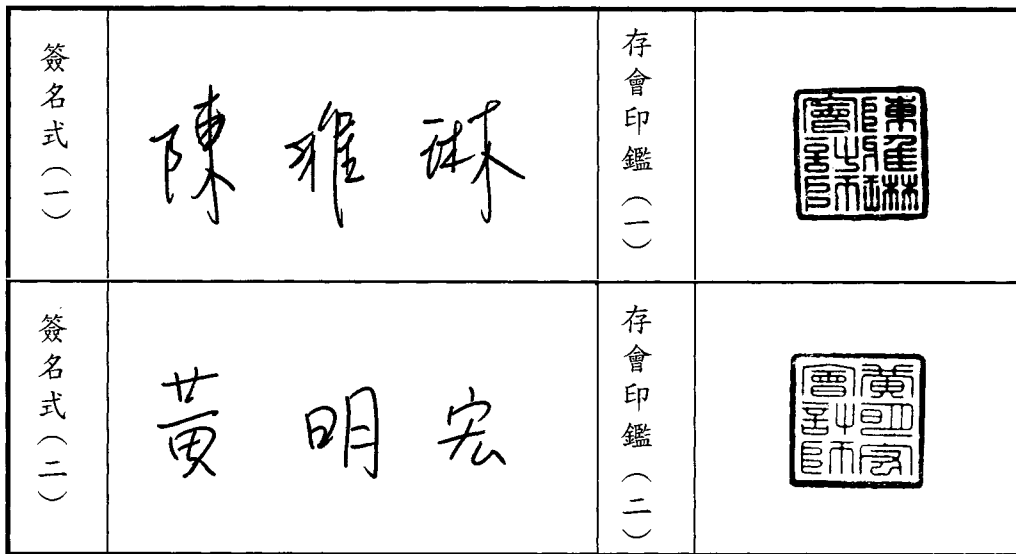 簽名式(一)
陳雅琳
存會印鑑(一)
陳雅琳會計師
簽名式(二)
黃明宏
存會印鑑(二)
黃明宏會計師